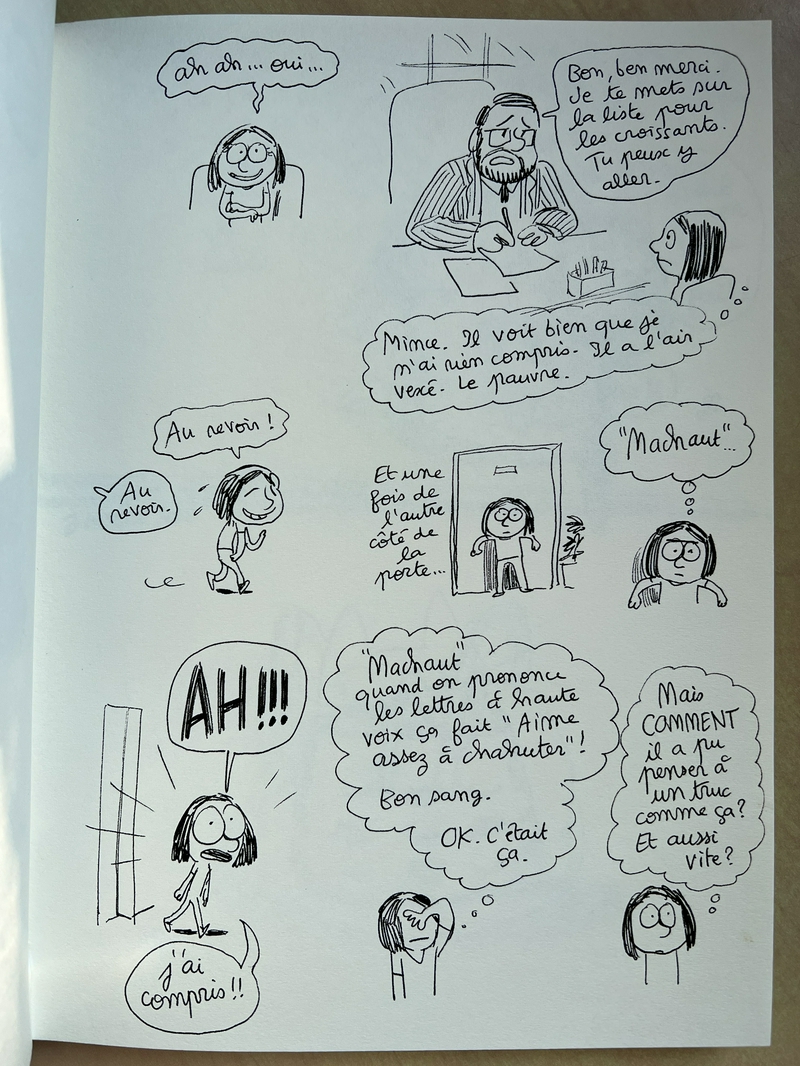 ah ah... oui...
Bon, ben merci.
Je te mets sur
la liste pour
les croissants.
Tu peux y
aller.
Mince. Il voit bien que je
n'ai rien compris. Il a l'air
vexé. Le pauvre.
Au revoir !
Au
revoir.
Et une
fois de
l'autre
côté de
la
porte...
"Machaut"...
AH!!!
j'ai
compris!!
"Machaut"
quand on prononce
les lettres à haute
voix ça fait "Aime
assez à chahuter"!
Bon sang.
OK. C'était
ça.
Mais
COMMENT
il a pu
penser à
un truc
comme ça?
Et aussi
vite?